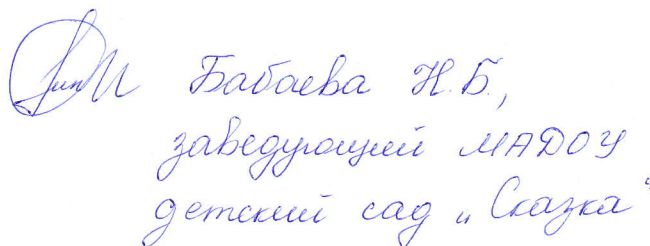 Бабаева Н.Б.,
заведующий МАДОУ
детский сад „Сказка“